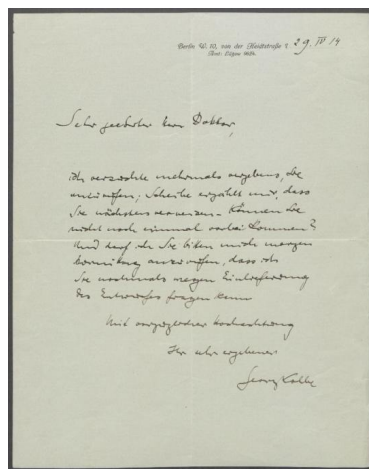 Berlin W. 10, von der Heydtstraße 7. 29. IV 14
Amt: Lützow
Sehr geehrter Herr Doktor,
ich versuchte mehrmals vergebens, Sie
anzurufen; Scheibe erzählt mir, dass
Sie nächstens verreisen. Können Sie
nicht noch einmal vorbei kommen?
Und darf ich Sie bitten mich morgen
Vormittag anzurufen, dass ich
Sie nochmals wegen Einlieferung
des Entwurfes fragen kann
Mit vorzüglicher Hochachtung
Ihr sehr ergebener
Georg Kolbe